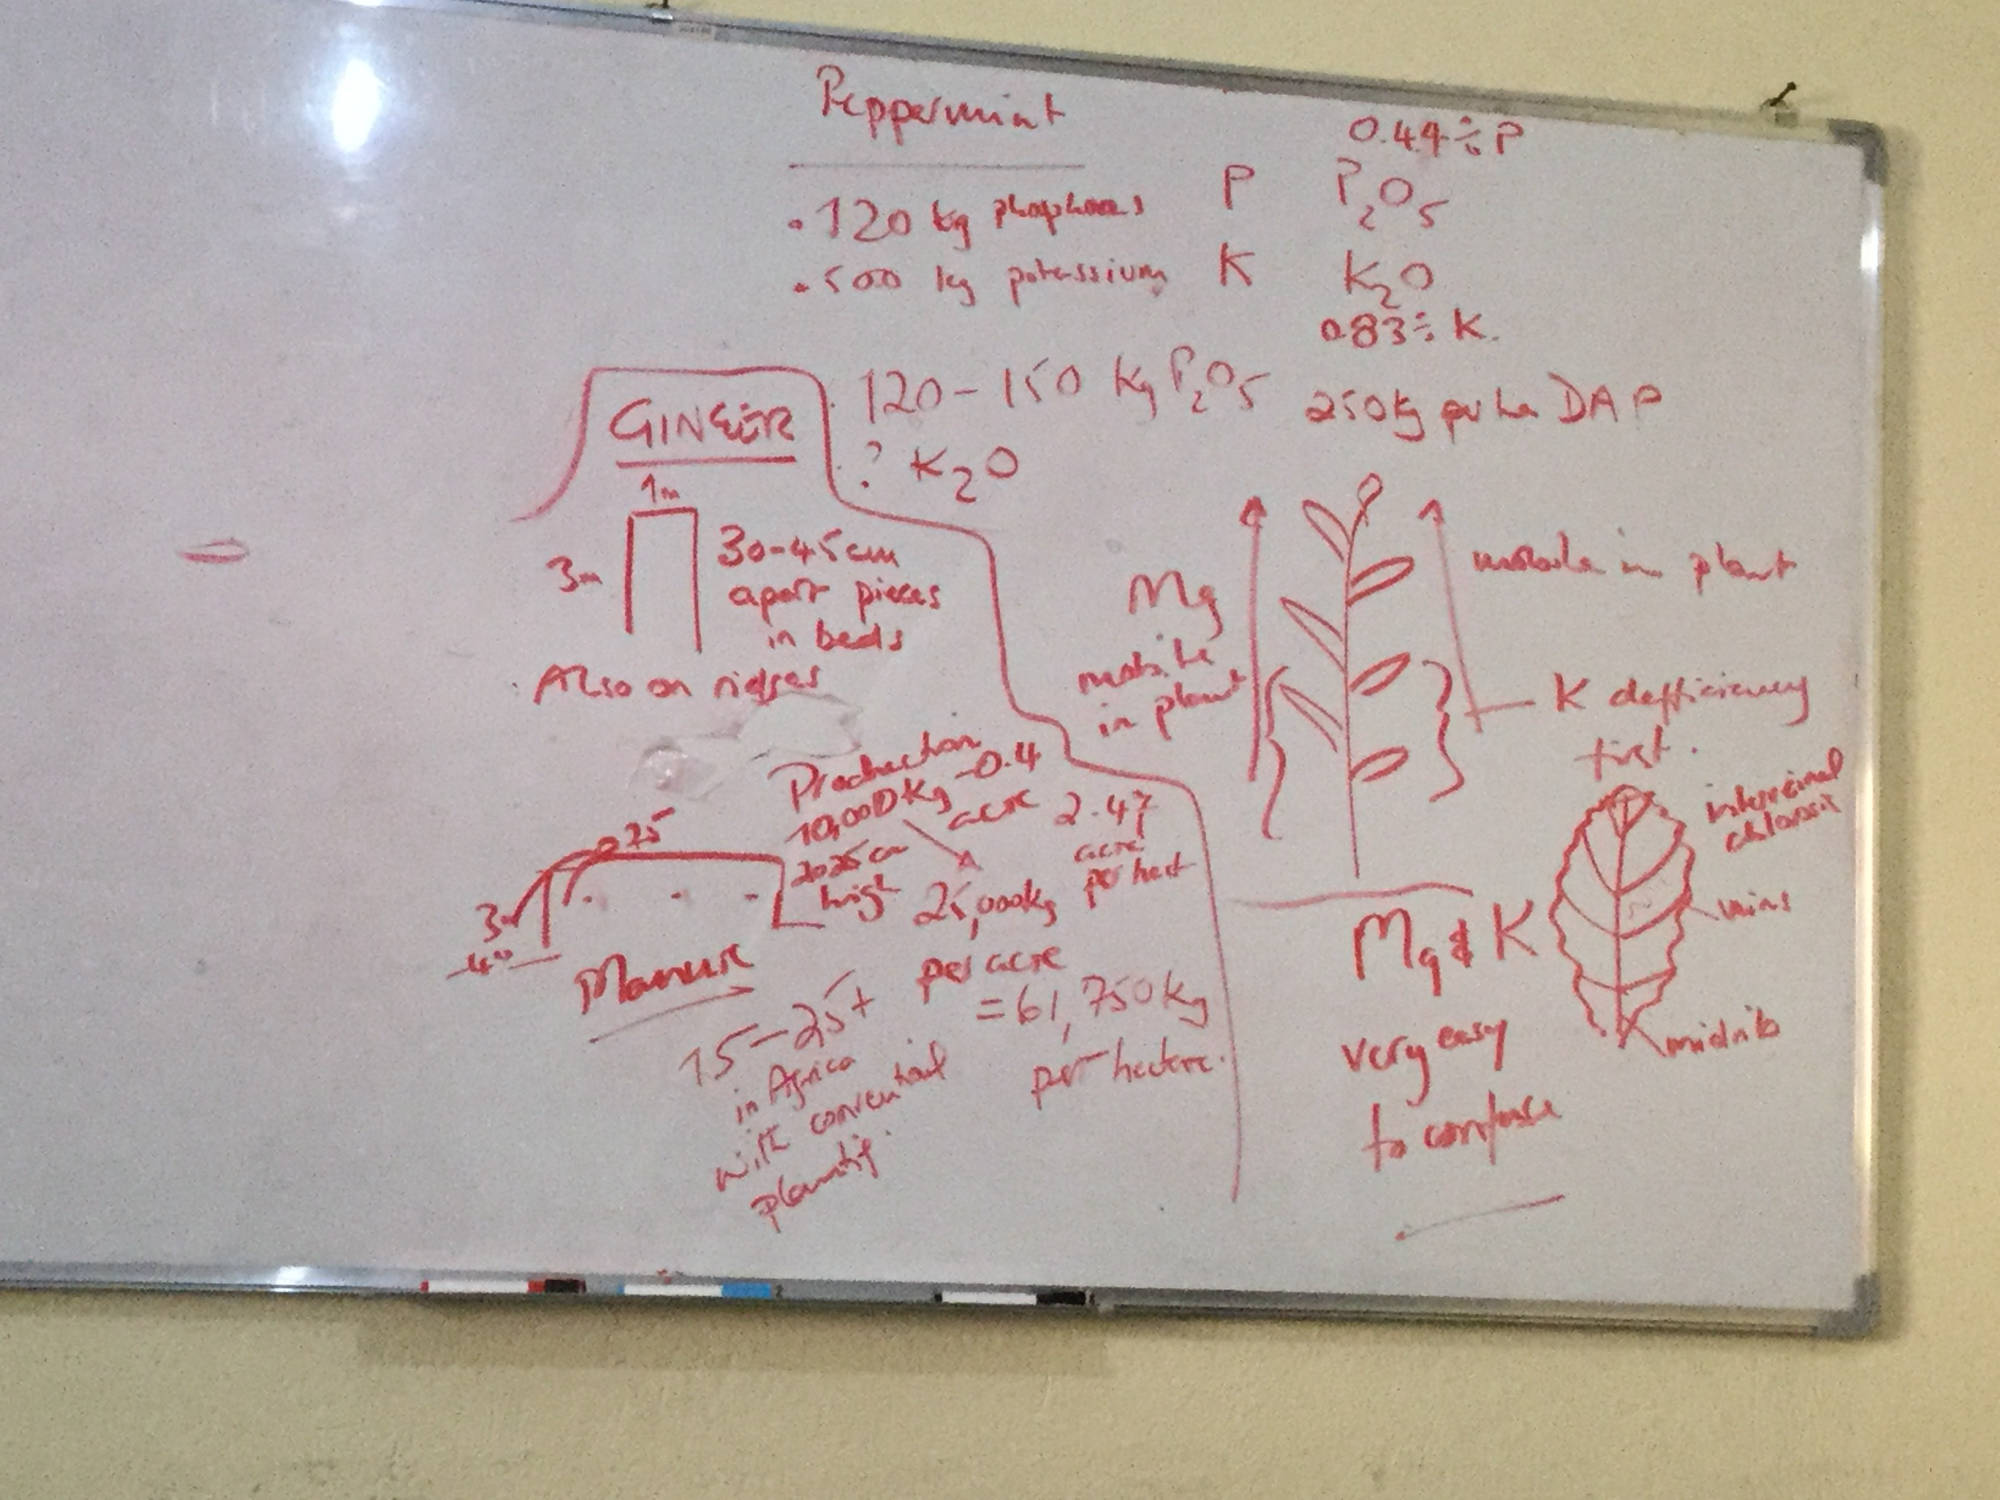 Peppermint
0.44 ÷ P
. 120 kg phosphorus P P2O5
. 500 kg potassium K K2O
0.83 ÷ K.
120-150 Kg P2O5
250kg per ha DAP
? K2O
GINGER
1m
3m
30-45cm
apart pieces
in beds
Also on ridges
Mg
mobile
in plant
mobile in plant
K defficiency
first.
interveinal
chlorosis
veins
midrib
Mg & K
very easy
to confuse
Production
10,000 Kg - 0.4
acre
2.47
acre
per hect
25,000kg
per acre
= 61,750 kg
per hectare.
0.75
high
3m
40
Manure
15-25t
in Africa
with